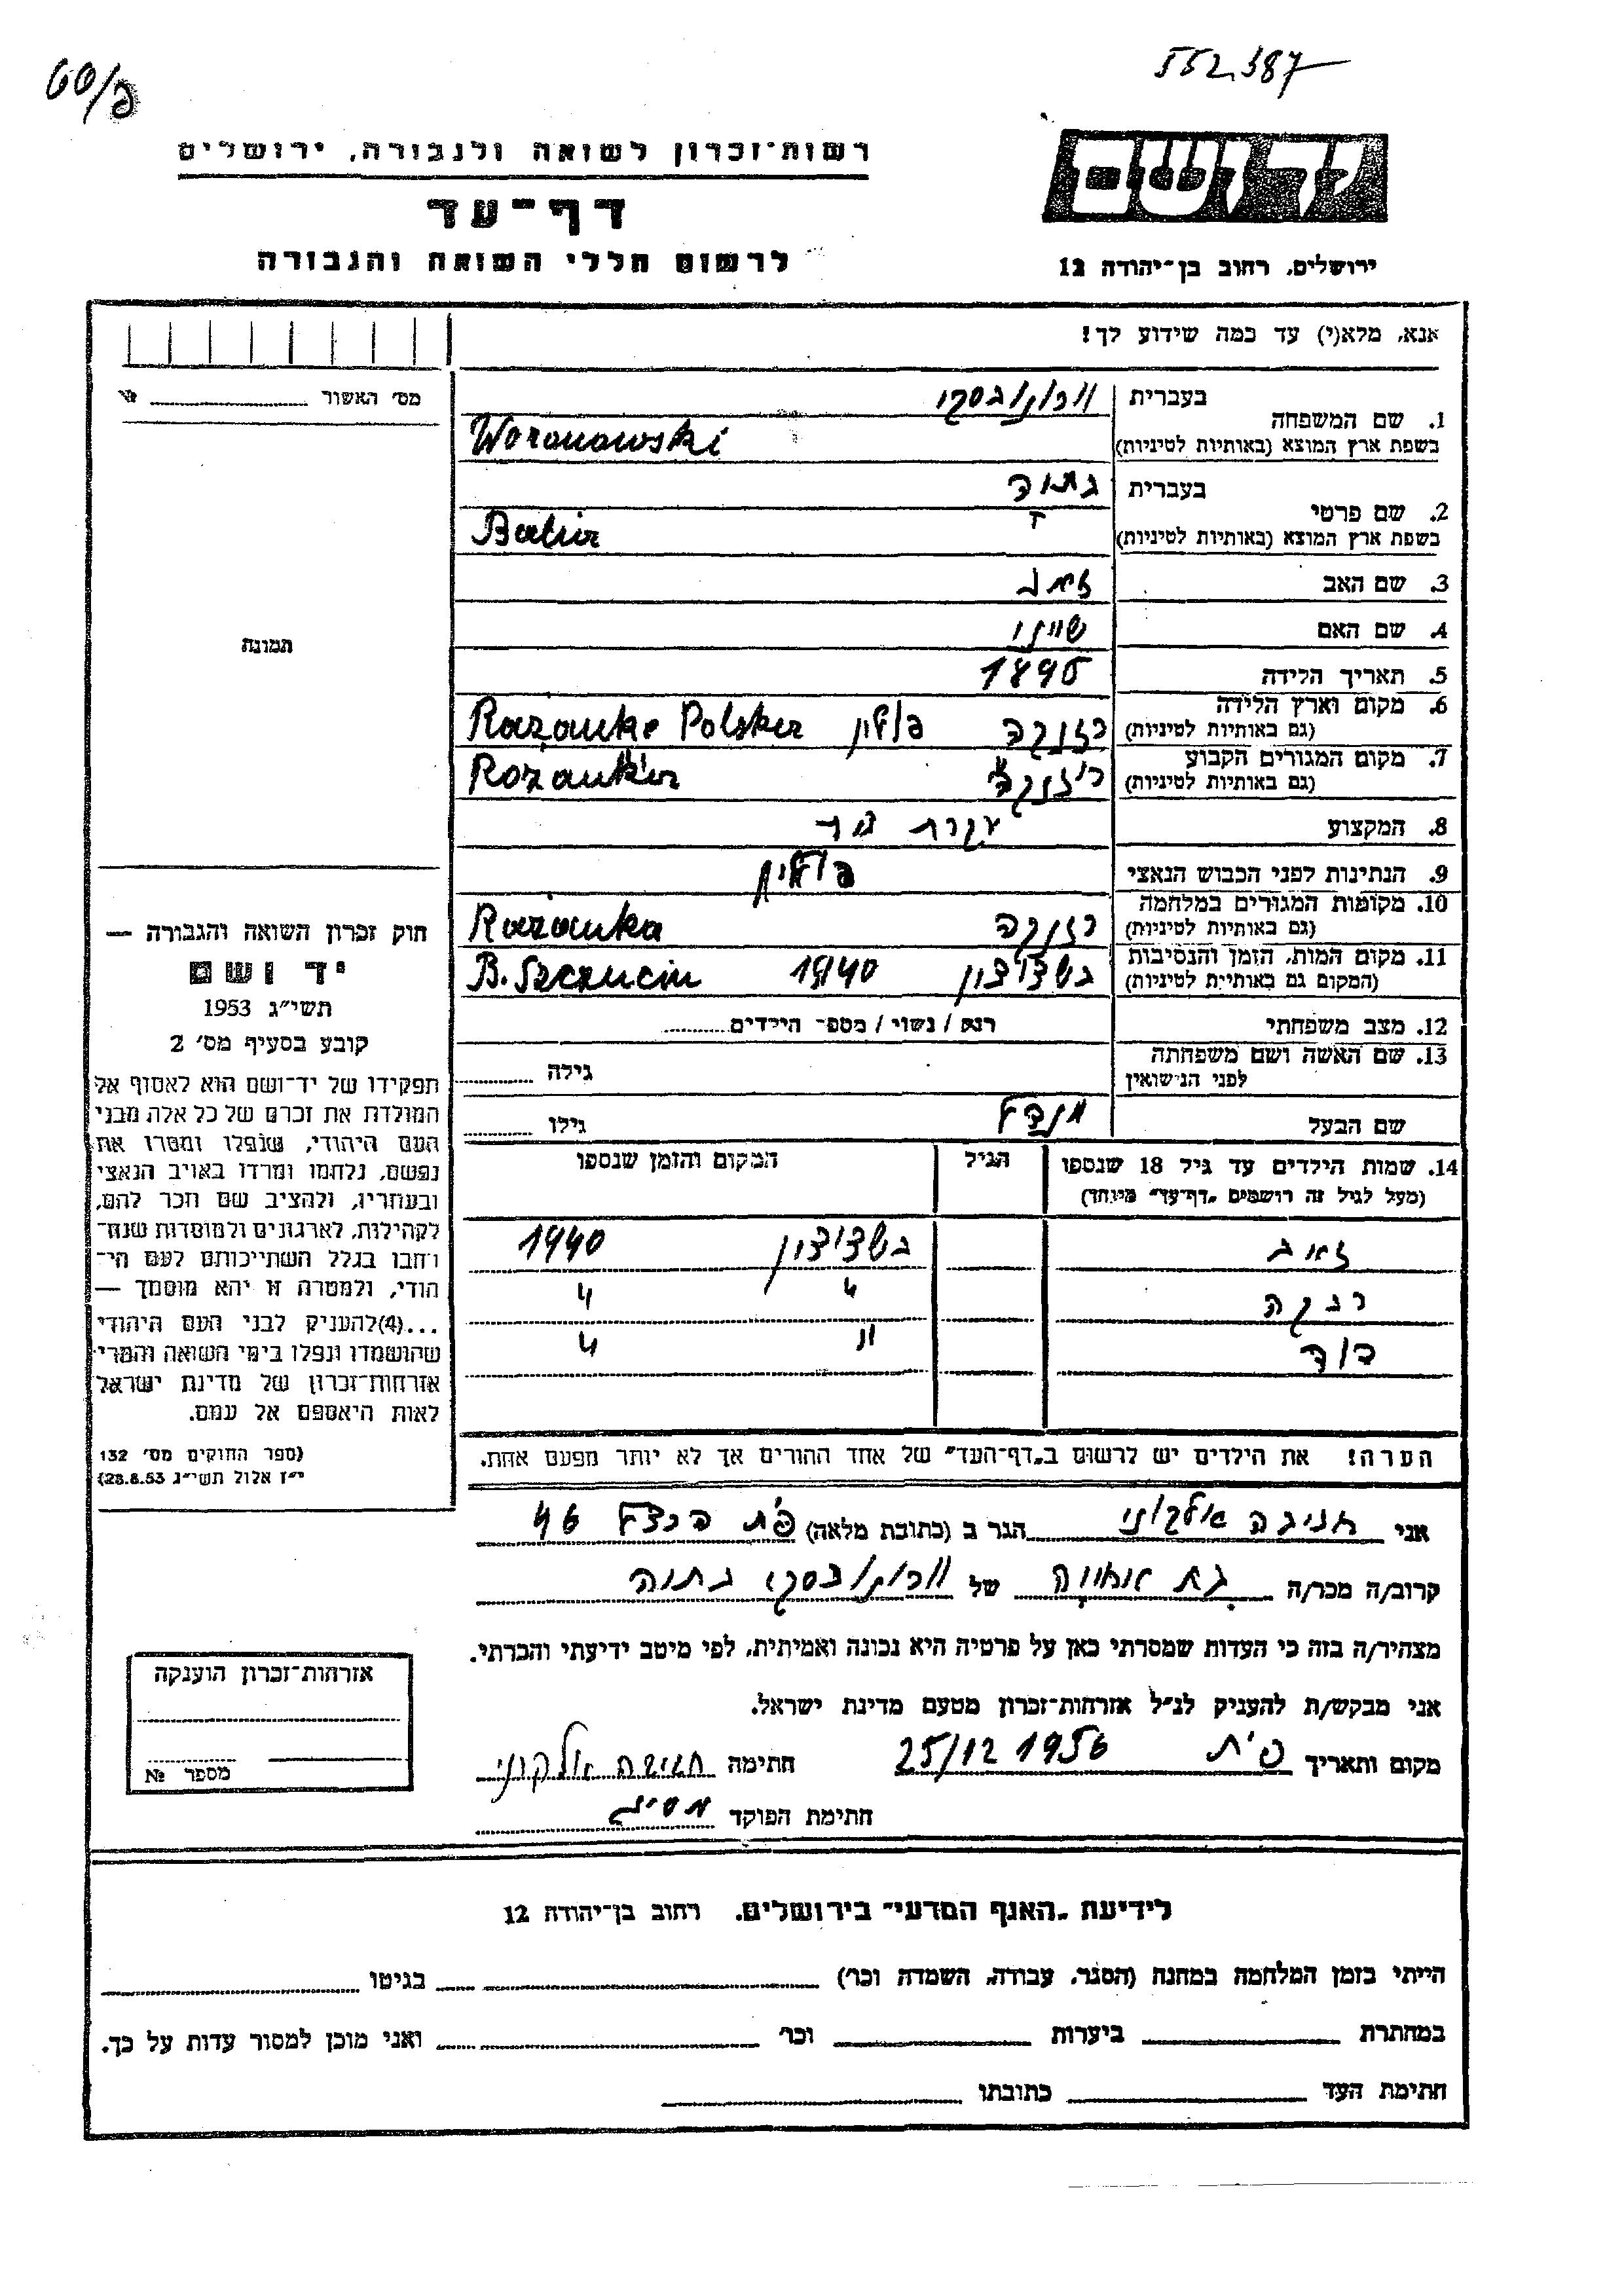 552,387
60/פ
ידושם
רשות-זכרון לשואה ולגבורה, ירושלים
דף-עד
לרשום חללי השואה והגבורה
ירושלים, רחוב בן-יהודה 12
אנא, מלא(י) עד כמה שידוע לך!
מס' האשור
1. שם המשפחה
בעברית וורונובסקי
בשפת ארץ המוצא (באותיות לטיניות) Woronowski
2. שם פרטי
בעברית בתיה
בשפת ארץ המוצא (באותיות לטיניות)
3. שם האב זאב
4. שם האם שיינו
5. תאריך הלידה 1895
6. מקום וארץ הלידה
(גם באותיות לטיניות) רזנקה פולין Razanke Polska
7. מקום המגורים הקבוע
(גם באותיות לטיניות) רוזנקה Rozanka
8. המקצוע עקרת בית
9. הנתינות לפני הכבוש הנאצי פולין
10. מקומות המגורים במלחמה
(גם באותיות לטיניות) רזנקה Razanka
11. מקום המות, הזמן והנסיבות
(המקום גם באותיות לטיניות) בשצוצין 1940 B. Szczucin
12. מצב משפחתי רוק / נשוי / מספר הילדים
13. שם האשה ושם משפחתה
לפני הנישואין גילה
שם הבעל מנדל גילו
14. שמות הילדים עד גיל 18 שנספו הגיל המקום והזמן שנספו
(מעל לגיל זה רושמים "דף-עד" מיוחד)
זאב בשצוצין 1940
רבקה " "
דוד " "
הערה! את הילדים יש לרשום ב"דף-העד" של אחד ההורים אך לא יותר מפעם אחת.
תמונה
חוק זכרון השואה והגבורה —
יד ושם
תשי"ג 1953
קובע בסעיף מס' 2
תפקידו של יד-ושם הוא לאסוף אל
המולדת את זכרם של כל אלה מבני
העם היהודי, שנפלו ומסרו את
נפשם, נלחמו ומרדו באויב הנאצי
ובעוזריו, ולהציב שם וזכר להם,
לקהילות, לארגונים ולמוסדות שנח-
רבו בגלל השתייכותם לעם הי-
הודי, ולמטרה זו יהא מוסמך —
...(4)להעניק לבני העם היהודי
שהושמדו ונפלו בימי השואה והמרי
אזרחות-זכרון של מדינת ישראל
לאות היאספם אל עמם.
(ספר החוקים מס' 132
י"ז אלול תשי"ג 28.8.53)
אני חניבה אלקוני הגר ב (כתובת מלאה) פ"ת הרצל 46
קרוב/ה מכר/ה בת אחיה של וורונובסקי בתיה
מצהיר/ה בזה כי העדות שמסרתי כאן על פרטיה היא נכונה ואמיתית, לפי מיטב ידיעתי והכרתי.
אני מבקש/ת להעניק לנ"ל אזרחות-זכרון מטעם מדינת ישראל.
מקום ותאריך פ"ת 25/12 1956 חתימה חניבה אלקוני
חתימת הפוקד
אזרחות-זכרון הוענקה
מספר №
לידיעת "האגף המדעי" בירושלים, רחוב בן-יהודה 12
הייתי בזמן המלחמה במחנה (הסגר, עבודה, השמדה וכו') בגיטו
במחתרת ביערות וכו' ואני מוכן למסור עדות על כך.
חתימת העד כתובתו